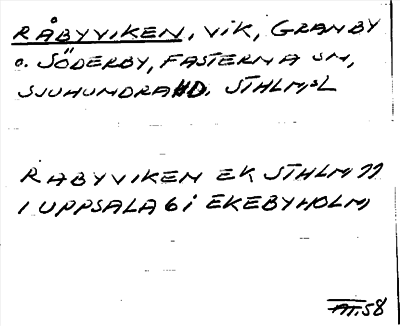 RÅBYVIKEN, VIK, GRANBY
o. SÖDERBY, FASTERNA SN,
SJUHUNDRA HD. STHLMSL
RABYVIKEN EK STHLM 77
I UPPSALA 6 i EKEBYHOLM,
58